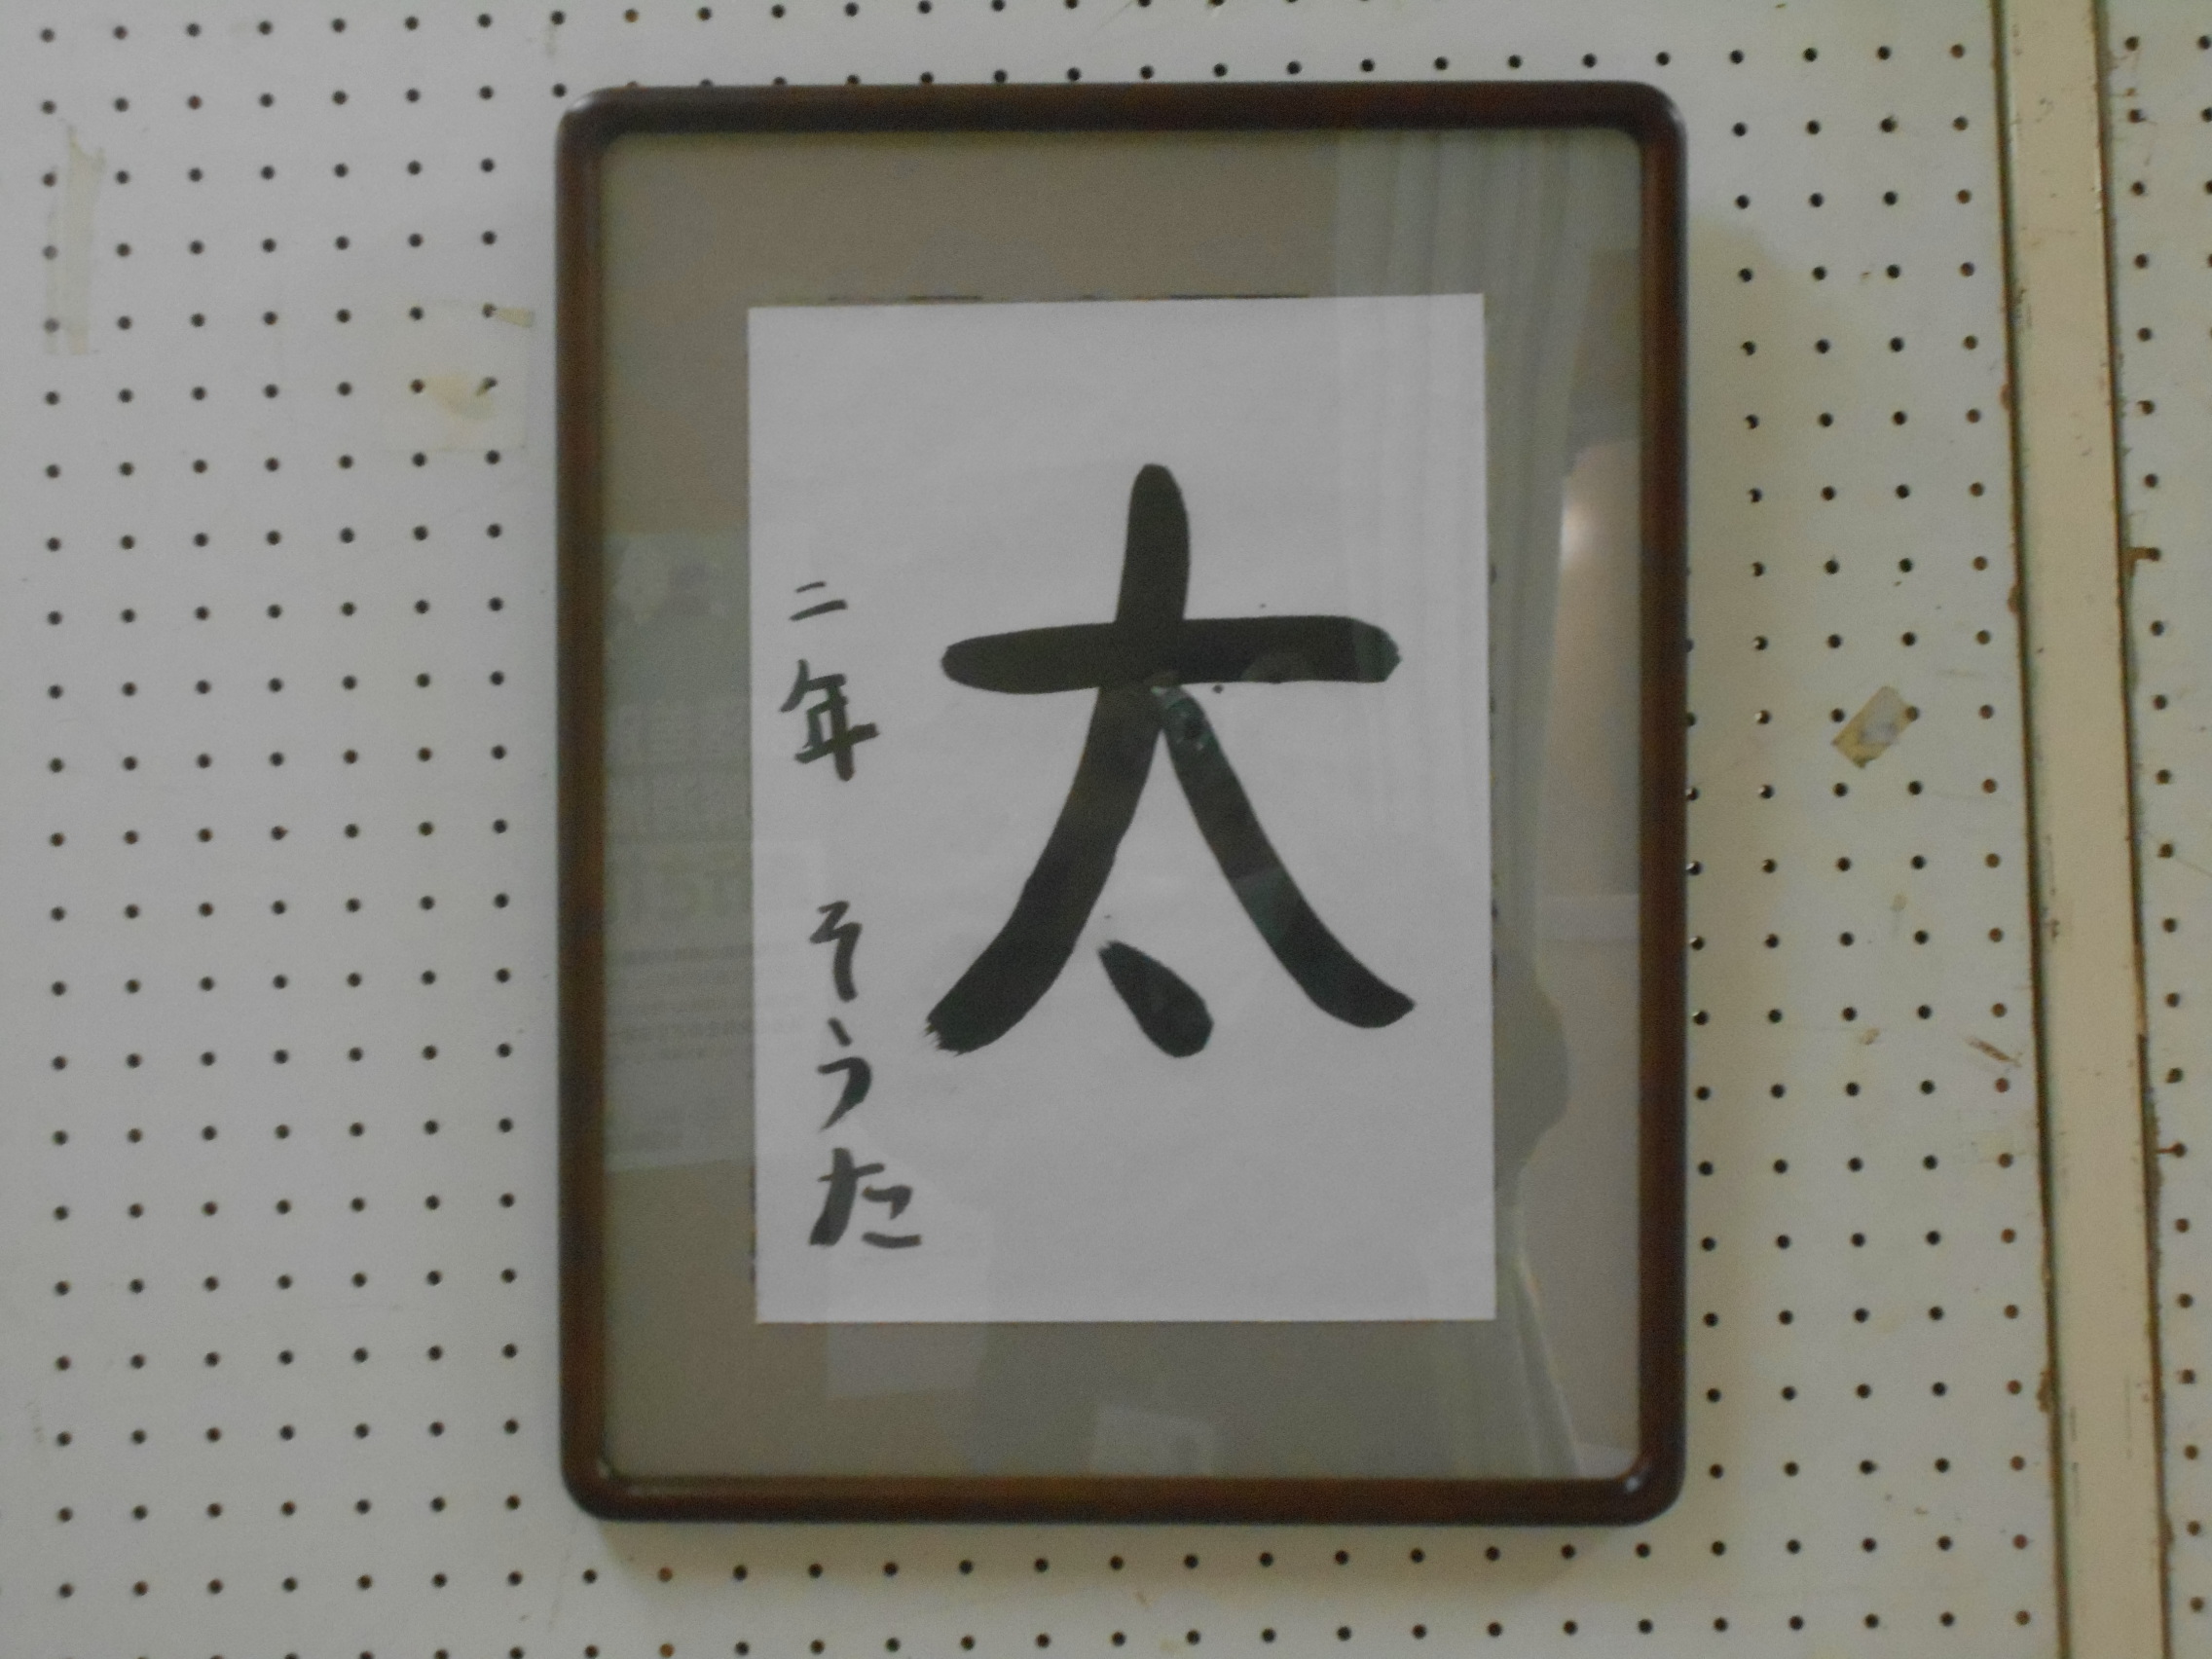 太
二年 そうた